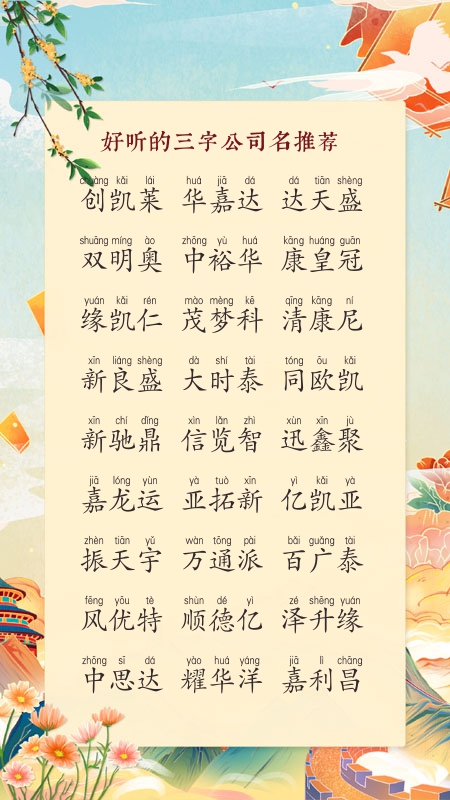 好听的三字公司名推荐
chuàng kǎi lái huá jiā dá dá tiān shèng
创凯莱 华嘉达 达天盛
shuāng míng ào zhōng yù huá kāng huáng guān
双明奥 中裕华 康皇冠
yuán kǎi rén mào mèng kē qīng kāng ní
缘凯仁 茂梦科 清康尼
xīn liáng shèng dà shí tài tóng ōu kǎi
新良盛 大时泰 同欧凯
xīn chí dǐng xìn lǎn zhì xùn xīn jù
新驰鼎 信览智 迅鑫聚
jiā lóng yùn yà tuò xīn yì kǎi yà
嘉龙运 亚拓新 亿凯亚
zhèn tiān yǔ wàn tōng pài bǎi guǎng tài
振天宇 万通派 百广泰
fēng yōu tè shùn dé yì zé shēng yuán
风优特 顺德亿 泽升缘
zhōng sī dá yào huá yáng jiā lì chāng
中思达 耀华洋 嘉利昌